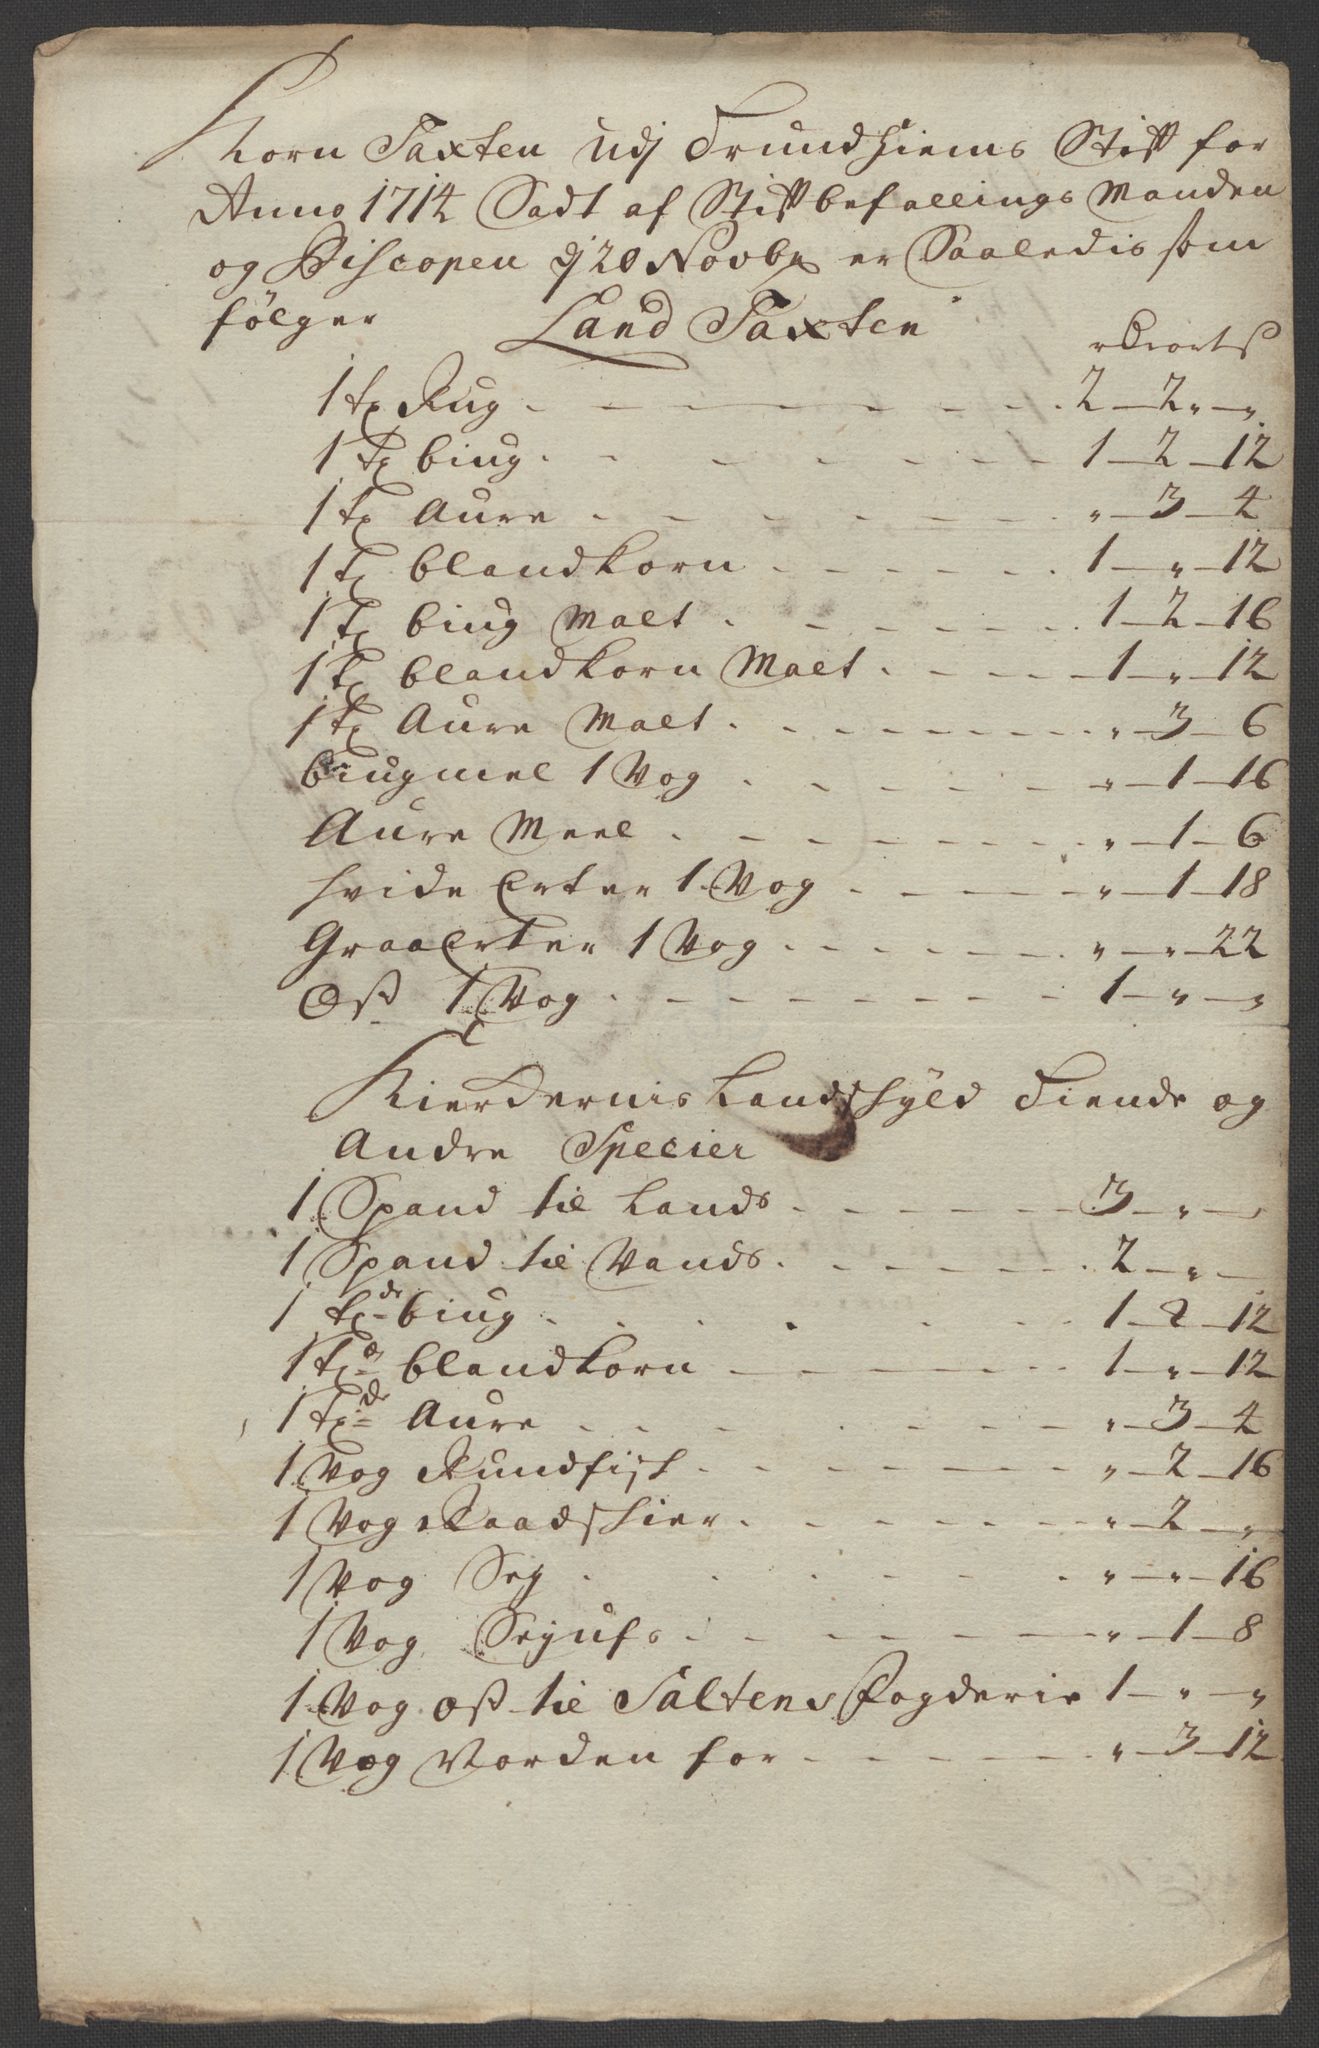 Korn Taxten Udj Trundhiems Stift for
Anno 1714 Sadt af Stiftbefallings Manden
og Biscopen dj 20 Novbr er Saaledis som
følger Land Taxten
r ort ß
1 tr Rug . . . 2 — 2 „ — „
1 tr biug . . . 1 — 2 — 12
1 tr Aure . . . „ — 3 — 4
1 tr blandkorn . . . 1 — „ — 12
1 tr biug Malt . . . 1 — 2 — 16
1 tr blandkorn Malt . . . 1 — „ — 12
1 tr Aure Malt . . . „ — 3 — 6
biugmel 1 Vog . . . „ — 1 — 16
Aure Meel . . . „ — 1 — 6
hvide Erter 1 Vog . . . „ — 1 — 18
Graaerter 1 Vog . . . „ — „ — 22
Ost 1 Vog . . . 1 — „ — „
Kierdernis Landschyld Tiende og
Andre Specier
1 Spand til Lands . . . 3 — „ —
1 Spand til Vands . . . 2 — „ —
1 tr de biug . . . 1 — 2 — 12
1 tr d blandkorn . . . 1 — „ — 12
1 tr de Aure . . . „ — 3 — 4
1 Vog Rundfisch . . . „ — 2 — 16
1 Vog Raadschier . . . „ — 2 — „
1 Vog Sey . . . „ — „ — 16
1 Vog Seyufs . . . „ — 1 — 8
1 Vog ost til Saltens Fogderie 1 — „ — „
1 Vog Norden for . . . „ — 3 — 12